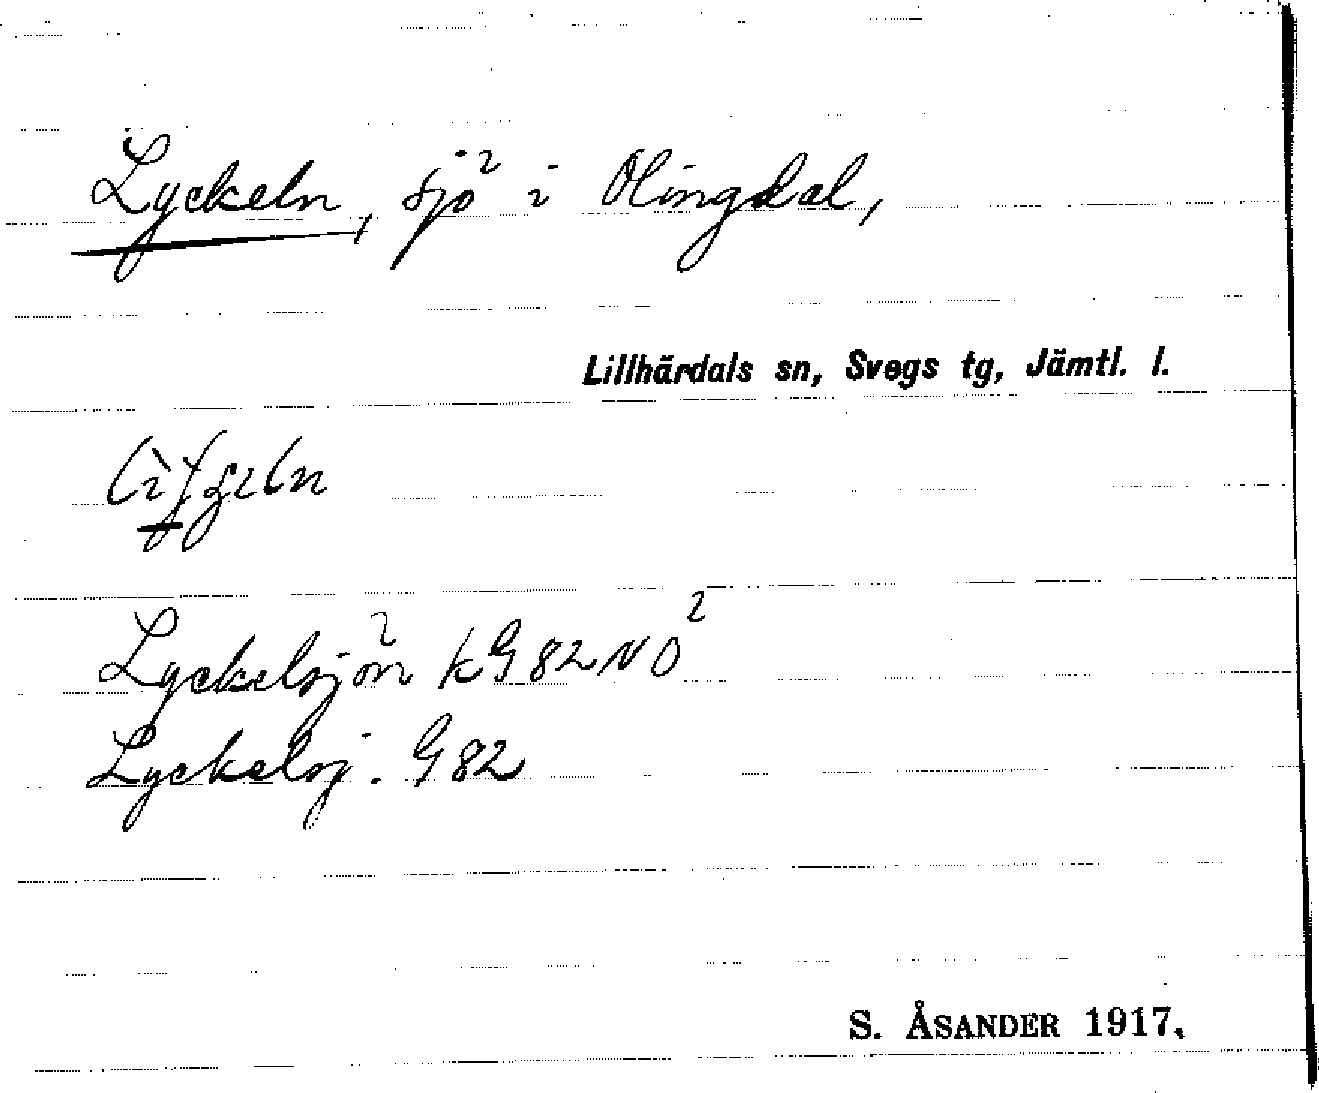 Lyckeln, sjö i Olingdal,
Lillhärdals sn, Svegs tg, Jämtl. l.
Lyckelsjön kG82NO
Lyckelsj. G82
S. ÅSANDER 1917.